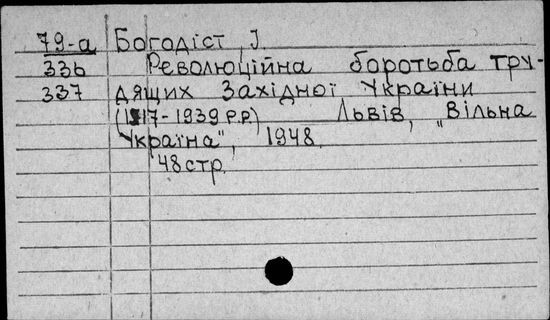 79-а Богодіст, І.
336 Революційна боротьба тру-
337 дящих Західної Украіни
(1917-1939 р.р.) Львів, „Вільна
Украіна", 1948.
48 стр.